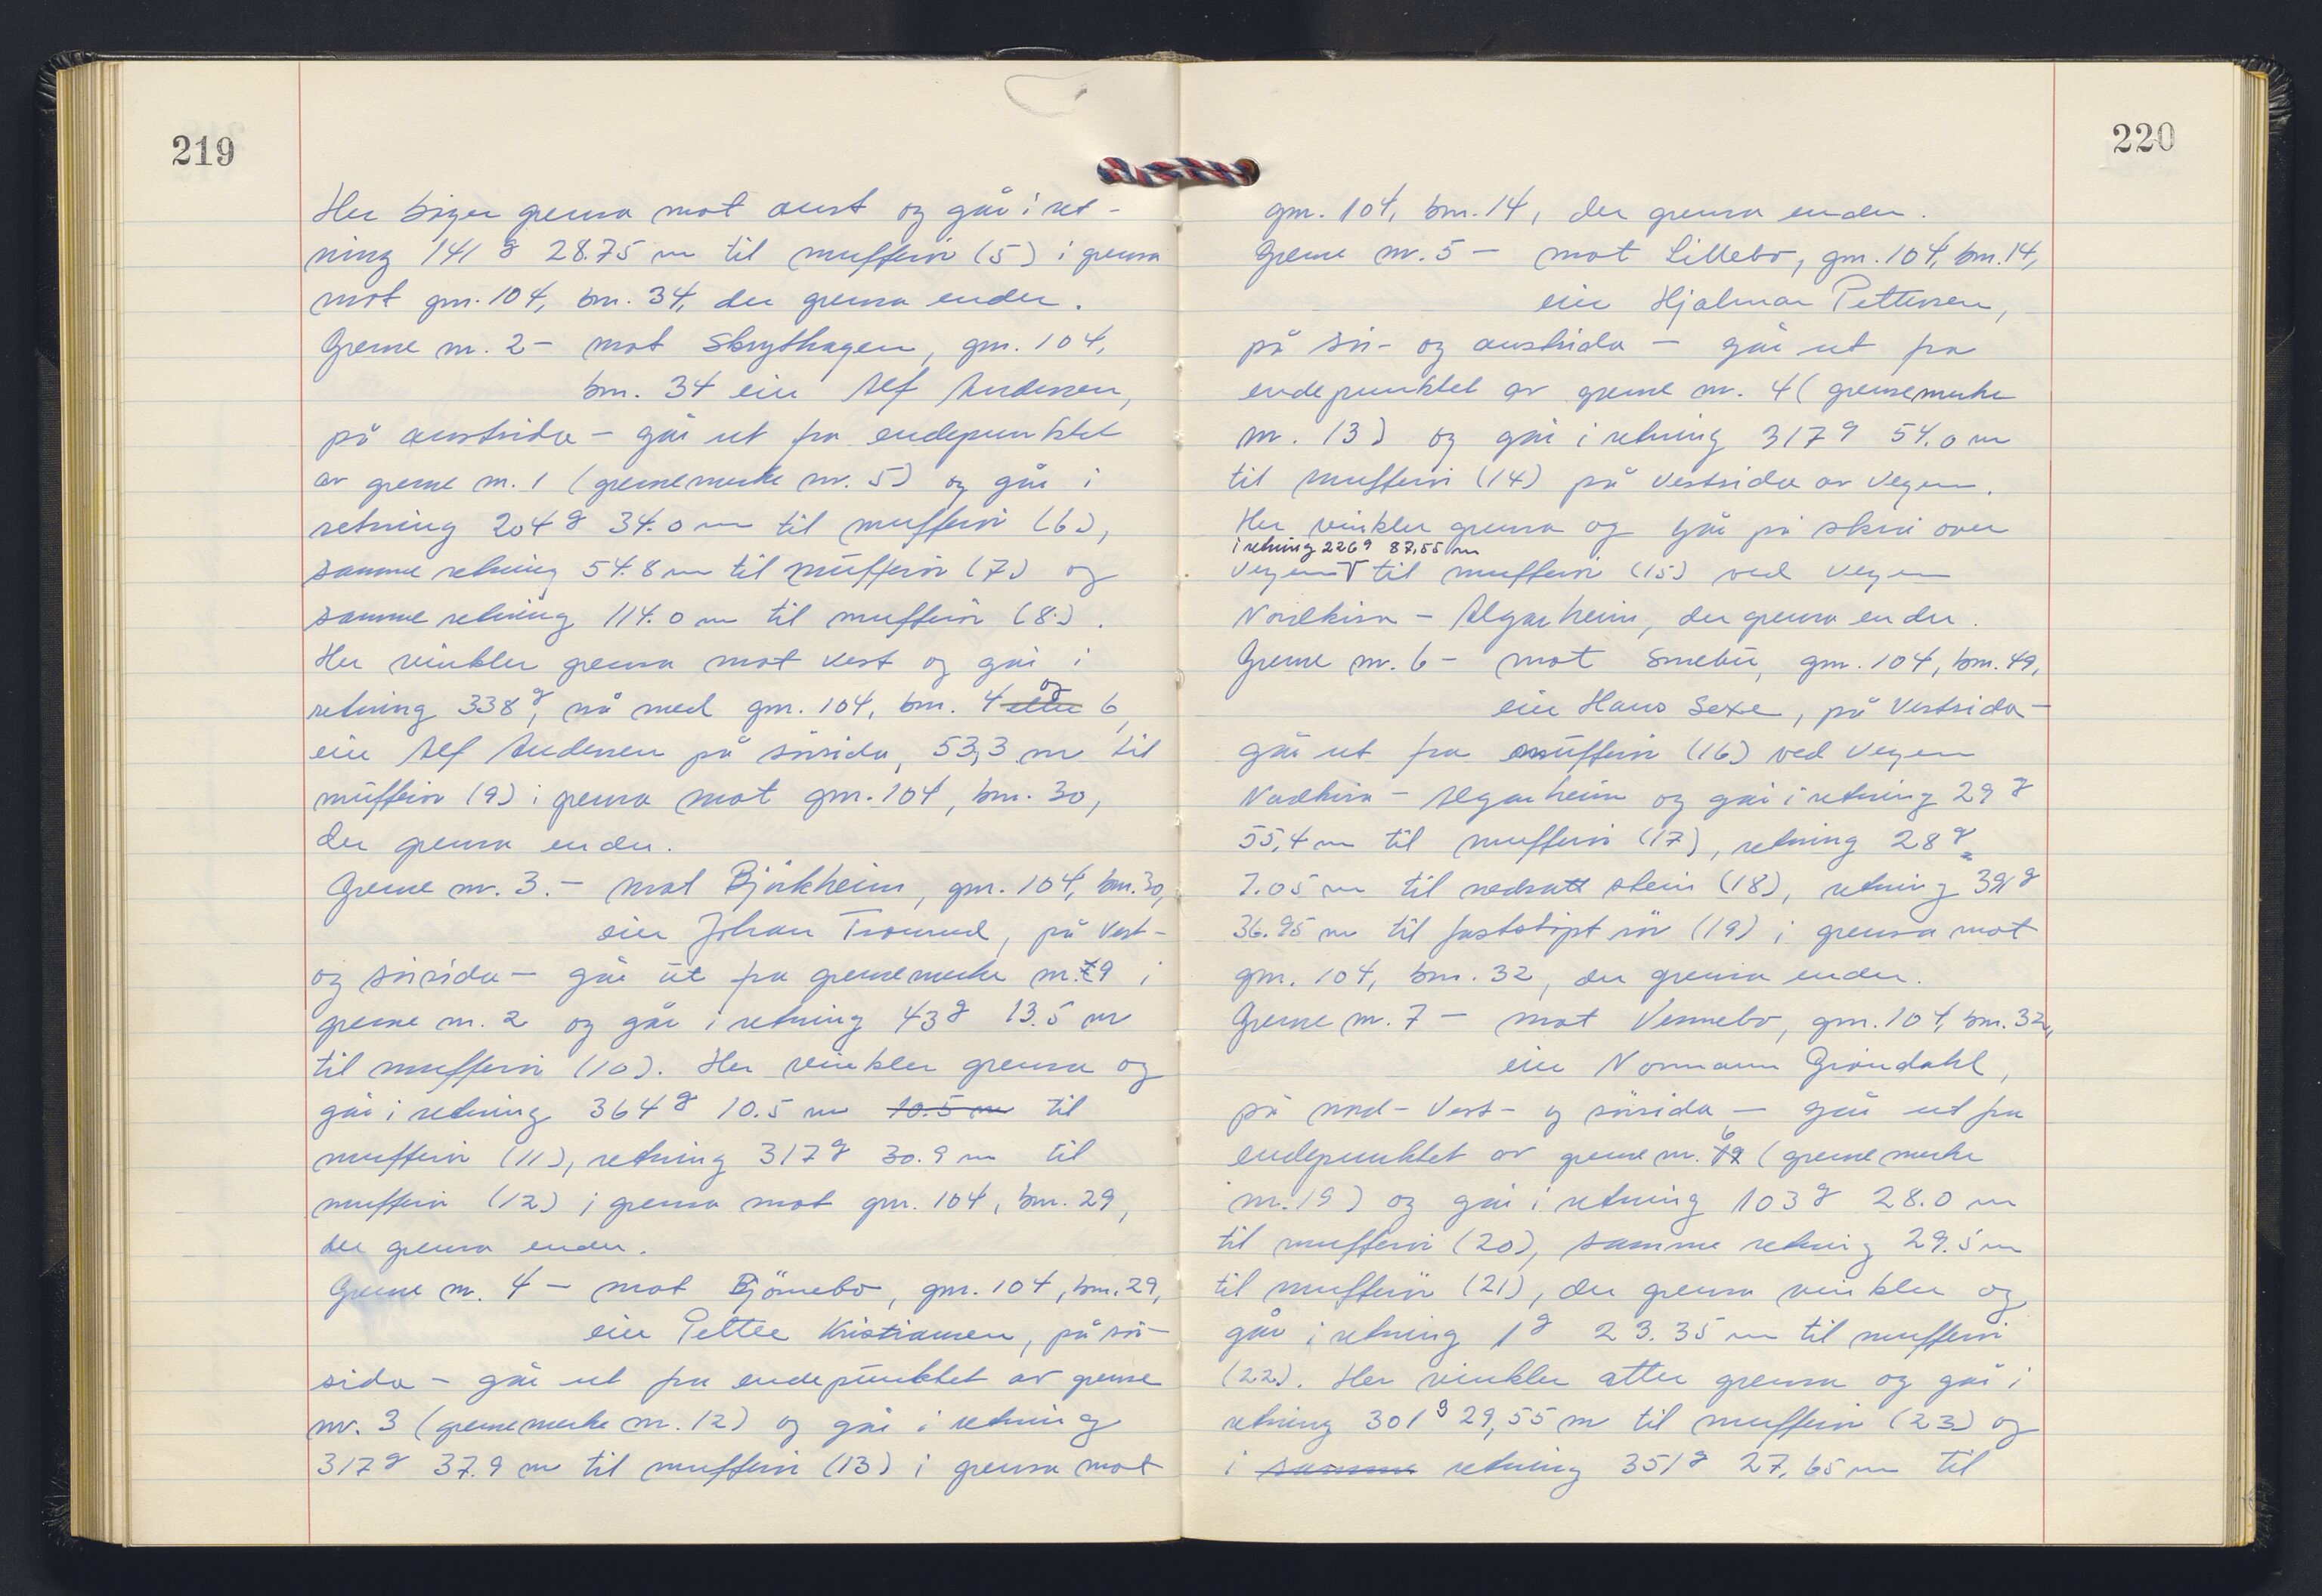 219
Her biger grensa mot aust og går i ret-
ning 141 g 28.75 m til mufferör (5) i grensa
mot gnr. 104, bnr. 34, der grensa ender.
Grense nr. 2 – mot Skrythagen, gnr. 104,
bnr. 34 eier Alf Andersen,
på austsida – går ut fra endepunktet
av grense nr. 1 (grensemerke nr. 5) og går i
retning 204 g 34.0 m til mufferör (6),
samme retning 54.8 m til mufferör (7) og
samme retning 114.0 m til mufferör (8).
Her vinkler grensa mot vest og går i
retning 338 g, nå med gnr. 104, bnr. 4 eller og 6,
eier Alf Andersen på sörsida, 53,3 m til
mufferör (9) i grensa mot gnr. 104, bnr. 30,
der grensa ender.
Grense nr. 3. – mot Björkheim, gnr. 104, bnr. 30,
eier Johan Tronrud, på vest-
og sörsida – går ut fra grensemerke nr. 9 i
grense nr. 2 og går i retning 43 g 13.5 m
til mufferör (10). Her vinkler grensa og
går i retning 364 g 10.5 m 10.5 m til
mufferör (11), retning 317 g 30.9 m til
mufferör (12) i grensa mot gnr. 104, bnr. 29,
der grensa ender.
Grense nr. 4 – mot Björnebo, gnr. 104, bnr. 29,
eier Petter Kristiansen, på sör-
sida – går ut fra endepunktet av grense
nr. 3 (grensemerke nr. 12) og går i retning
317 g 37.9 m til mufferör (13) i grensa mot
220
gnr. 104, bnr. 14, der grensa ender.
Grense nr. 5 – mot Lillebo, gnr. 104, bnr. 14,
eier Hjalmar Pettersen,
på sör- og austsida – går ut fra
endepunktet av grense nr. 4 (grensemerke
nr. 13) og går i retning 317 g 54.0 m
til mufferör (14) på vestsida av vegen.
Her vinkler grensa og går på skrå over
i retning 226 g 87,55 m
vegen til mufferör (15) ved vegen
Nordkisa – Algarheim, der grensa ender.
Grense nr. 6 – mot Smebu, gnr. 104, bnr. 49,
eier Hans Sexe, på vestsida –
går ut fra mufferör (16) ved vegen
Nordkisa – Algarheim og går i retning 29 g
55,4 m til mufferör (17), retning 28 g
7.05 m til nedsatt stein (18), retning 391 g
36.95 m til faststöpt rör (19) i grensa mot
gnr. 104, bnr. 32, der grensa ender.
Grense nr. 7 – mot Vennebo, gnr. 104, bnr. 32,
eier Normann Gröndahl,
på nord- vest- og sörsida – går ut fra
endepunktet av grense nr. 6 (grensemerke
nr. 19) og går i retning 103 g 28.0 m
til mufferör (20), samme retning 29.5 m
til mufferör (21), der grensa vinkler og
går i retning 1 g 23.35 m til mufferör
(22). Her vinkler atter grensa og går i
retning 301 g 29,55 m til mufferör (23) og
i samme retning 351 g 27,65 m til